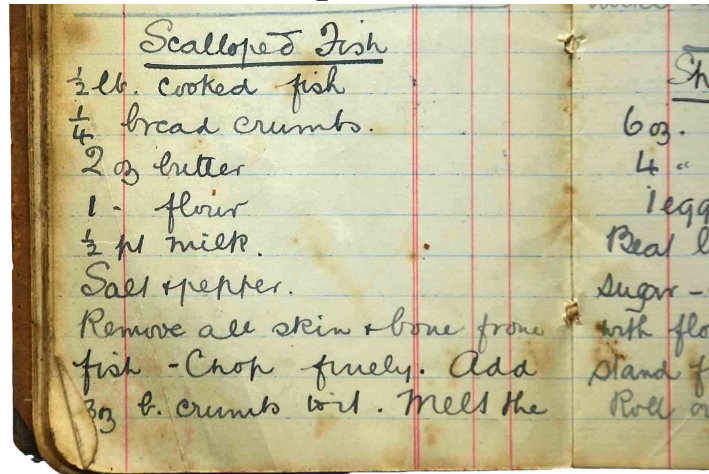 Scalloped Fish
½ lb. cooked fish
¼ bread crumbs.
2 oz butter
1 - flour
½ pt milk.
Salt + pepper.
Remove all skin + bone from
fish - Chop finely. Add
3oz b. crumbs to it. Melt the
Sh
6 oz.
4 "
1 egg
Beat
sugar -
with flo
stand f
Roll